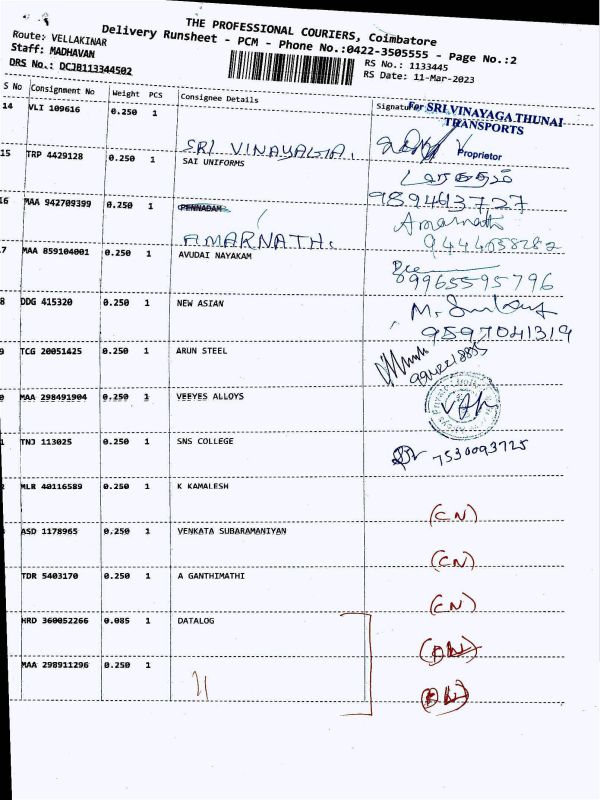 THE PROFESSIONAL COURIERS, Coimbatore
Delivery Runsheet - PCM - Phone No.:0422-3505555 - Page No.:2
Route: VELLAKINAR
Staff: MADHAVAN
DRS No.: DCJB113344502
RS No.: 1133445
RS Date: 11-Mar-2023
S No Consignment No Weight PCS Consignee Details Signature
For SRI VINAYAGA THUNAI
TRANSPORTS
Proprietor
14 VLI 109616 0.250 1
SRI VINAYAGA.
15 TRP 4429128 0.250 1 SAI UNIFORMS
9894613727
6 MAA 942709399 0.250 1 PENNADAM
AMARNATH.
Amarnath
9444058282
7 MAA 859104001 0.250 1 AVUDAI NAYAKAM
8996559 5796
8 DDG 415320 0.250 1 NEW ASIAN
9597041319
9 TCG 20051425 0.250 1 ARUN STEEL
0 MAA 298491904 0.250 1 VEEYES ALLOYS
1 TNJ 113025 0.250 1 SNS COLLEGE
7530093725
MLR 40116589 0.250 1 K KAMALESH
(CN)
ASD 1178965 0.250 1 VENKATA SUBARAMANIYAN
(CN)
TDR 5403170 0.250 1 A GANTHIMATHI
(CN)
HRD 360052266 0.085 1 DATALOG
MAA 298911296 0.250 1